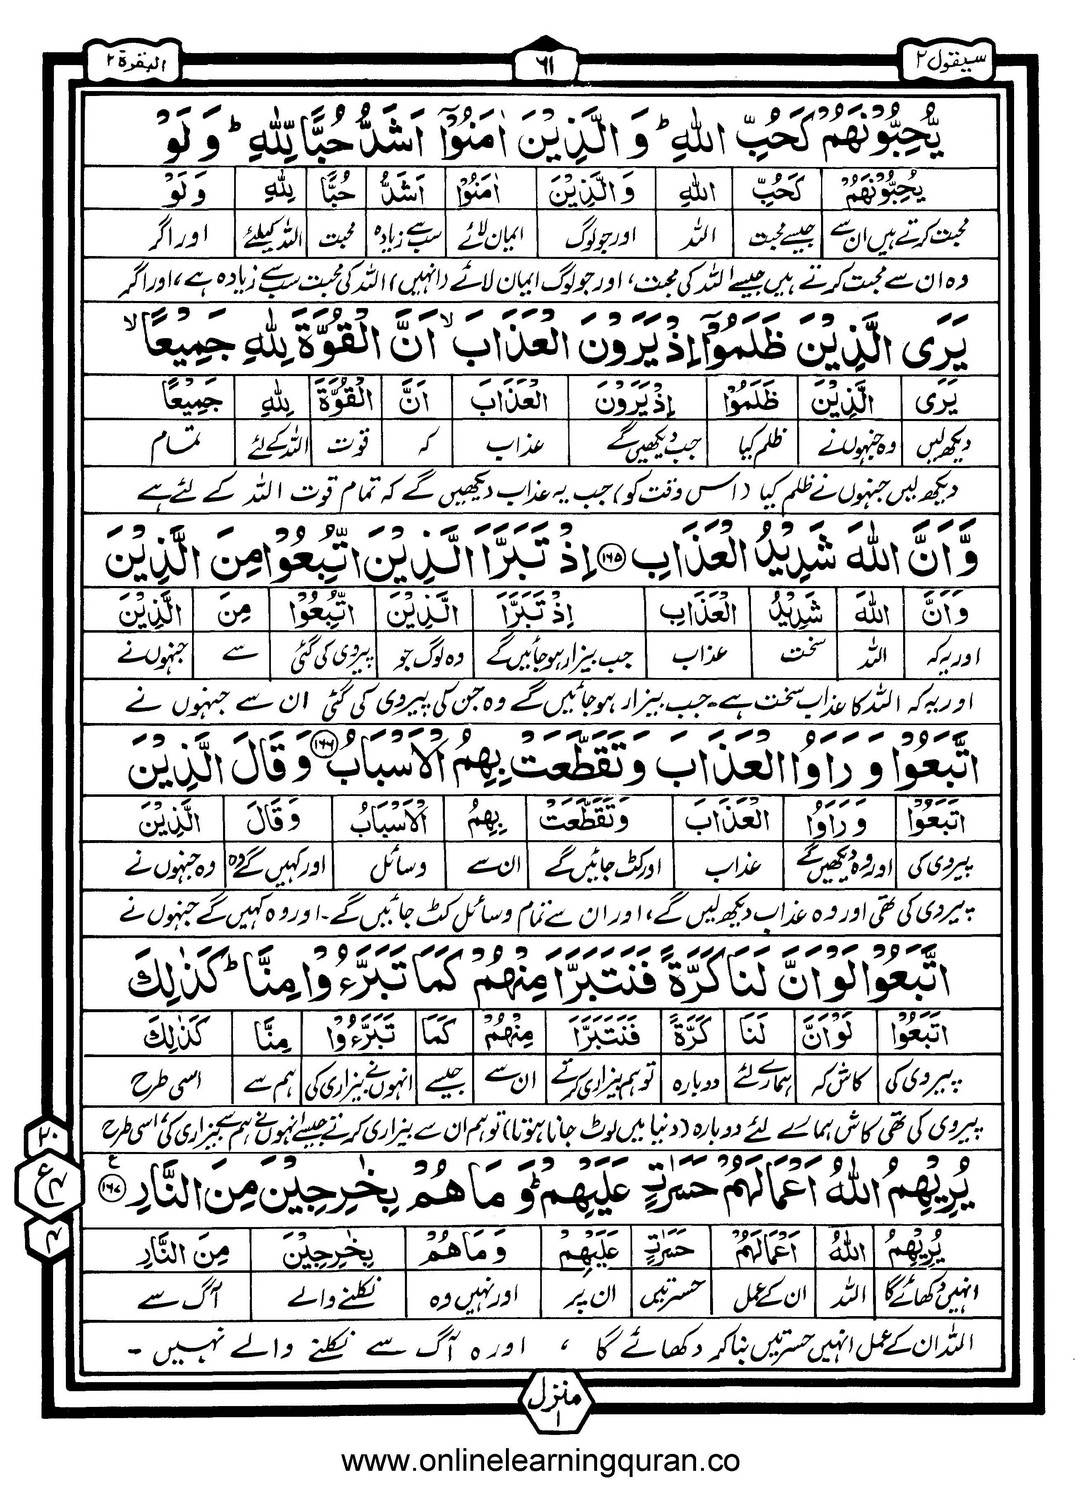 سيقول ٢
٦١
البقرة ٢
يُّحِبُّوْنَهُمْ كَحُبِّ اللّٰهِ ؕ وَ الَّذِيْنَ اٰمَنُوْۤا اَشَدُّ حُبًّا لِّلّٰهِ ؕ وَ لَوْ
يُحِبُّوْنَهُمْ كَحُبِّ اللّٰهِ وَالَّذِيْنَ اٰمَنُوْا اَشَدُّ حُبًّا لِلّٰهِ وَ لَوْ
محبت کرتے ہیں ان سے جیسے محبت اللہ اور جو لوگ ایمان لائے سب سے زیادہ محبت اللہ کیلئے اور اگر
وہ ان سے محبت کرتے ہیں جیسے اللہ کی محبت، اور جو لوگ ایمان لائے (انہیں) اللہ کی محبت سب سے زیادہ ہے، اور اگر
يَرَى الَّذِيْنَ ظَلَمُوْۤا اِذْ يَرَوْنَ الْعَذَابَ ۙ اَنَّ الْقُوَّةَ لِلّٰهِ جَمِيْعًا ۙ
يَرَى الَّذِيْنَ ظَلَمُوْا اِذْ يَرَوْنَ الْعَذَابَ اَنَّ الْقُوَّةَ لِلّٰهِ جَمِيْعًا
دیکھ لیں وہ جنہوں نے ظلم کیا جب دیکھیں گے عذاب کہ قوت اللہ کے لئے تمام
دیکھ لیں جنہوں نے ظلم کیا (اس وقت کو) جب یہ عذاب دیکھیں گے کہ تمام قوت اللہ کے لئے ہے
وَّ اَنَّ اللّٰهَ شَدِيْدُ الْعَذَابِ ﴿١٦٥﴾ اِذْ تَبَرَّاَ الَّذِيْنَ اتُّبِعُوْا مِنَ الَّذِيْنَ
وَ اَنَّ اللّٰهَ شَدِيْدُ الْعَذَابِ اِذْ تَبَرَّاَ الَّذِيْنَ اتُّبِعُوْا مِنَ الَّذِيْنَ
اور یہ کہ اللہ سخت عذاب جب بیزار ہو جائیں گے وہ لوگ جو پیروی کی گئی سے جنہوں نے
اور یہ کہ اللہ کا عذاب سخت ہے۔ جب بیزار ہو جائیں گے وہ جن کی پیروی کی گئی ان سے جنہوں نے
اتَّبَعُوْا وَ رَاَوُا الْعَذَابَ وَ تَقَطَّعَتْ بِهِمُ الْاَسْبَابُ ﴿١٦٦﴾ وَ قَالَ الَّذِيْنَ
اتَّبَعُوْا وَ رَاَوُا الْعَذَابَ وَ تَقَطَّعَتْ بِهِمُ الْاَسْبَابُ وَ قَالَ الَّذِيْنَ
پیروی کی اور وہ دیکھیں گے عذاب اور کٹ جائیں گے ان سے وسائل اور کہیں گے وہ وہ جنہوں نے
پیروی کی تھی اور وہ عذاب دیکھ لیں گے، اور ان سے تمام وسائل کٹ جائیں گے۔ اور وہ کہیں گے جنہوں نے
اتَّبَعُوْا لَوْ اَنَّ لَنَا كَرَّةً فَنَتَبَرَّاَ مِنْهُمْ كَمَا تَبَرَّءُوْا مِنَّا ؕ كَذٰلِكَ
اتَّبَعُوْا لَوْ اَنَّ لَنَا كَرَّةً فَنَتَبَرَّاَ مِنْهُمْ كَمَا تَبَرَّءُوْا مِنَّا كَذٰلِكَ
پیروی کی کاش کہ ہمارے لئے دوبارہ تو ہم بیزاری کرتے ان سے جیسے انہوں نے بیزاری کی ہم سے اسی طرح
پیروی کی تھی کاش ہمارے لئے دوبارہ (دنیا میں لوٹ جانا ہوتا) تو ہم ان سے بیزاری کرتے جیسے انہوں نے ہم سے بیزاری کی، اسی طرح
يُرِيْهِمُ اللّٰهُ اَعْمَالَهُمْ حَسَرٰتٍ عَلَيْهِمْ ؕ وَ مَا هُمْ بِخٰرِجِيْنَ مِنَ النَّارِ ﴿١٦٧﴾ ع
٢٠
ع
٤
٤
يُرِيْهِمُ اللّٰهُ اَعْمَالَهُمْ حَسَرٰتٍ عَلَيْهِمْ وَ مَا هُمْ بِخٰرِجِيْنَ مِنَ النَّارِ
انہیں دکھائے گا اللہ ان کے عمل حسرتیں ان پر اور نہیں وہ نکلنے والے آگ سے
اللہ ان کے عمل انہیں حسرتیں بنا کر دکھائے گا ، اور ہ آگ سے نکلنے والے نہیں ۔
منزل ١
www.onlinelearningquran.co